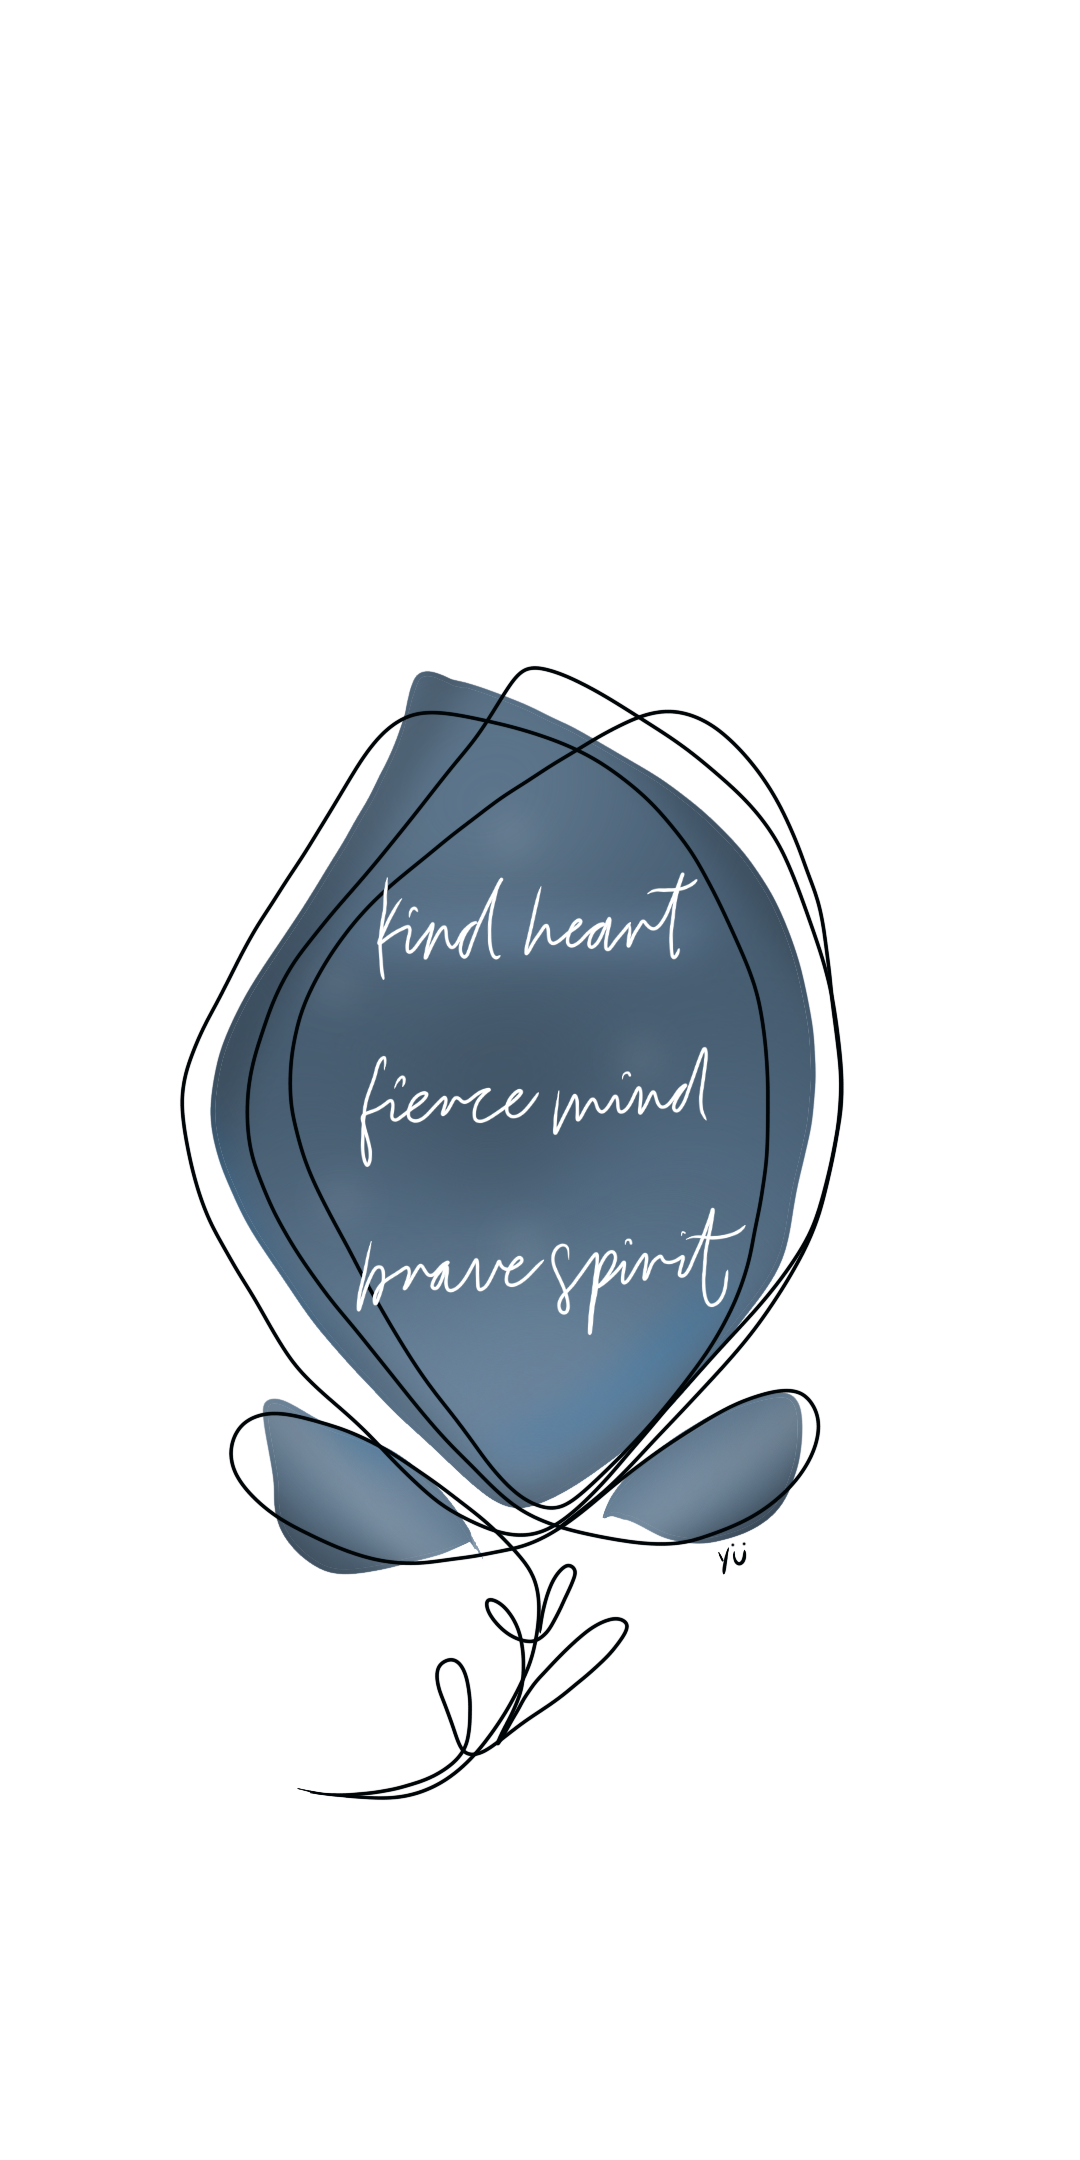 kind heart
fierce mind
brave spirit
yü